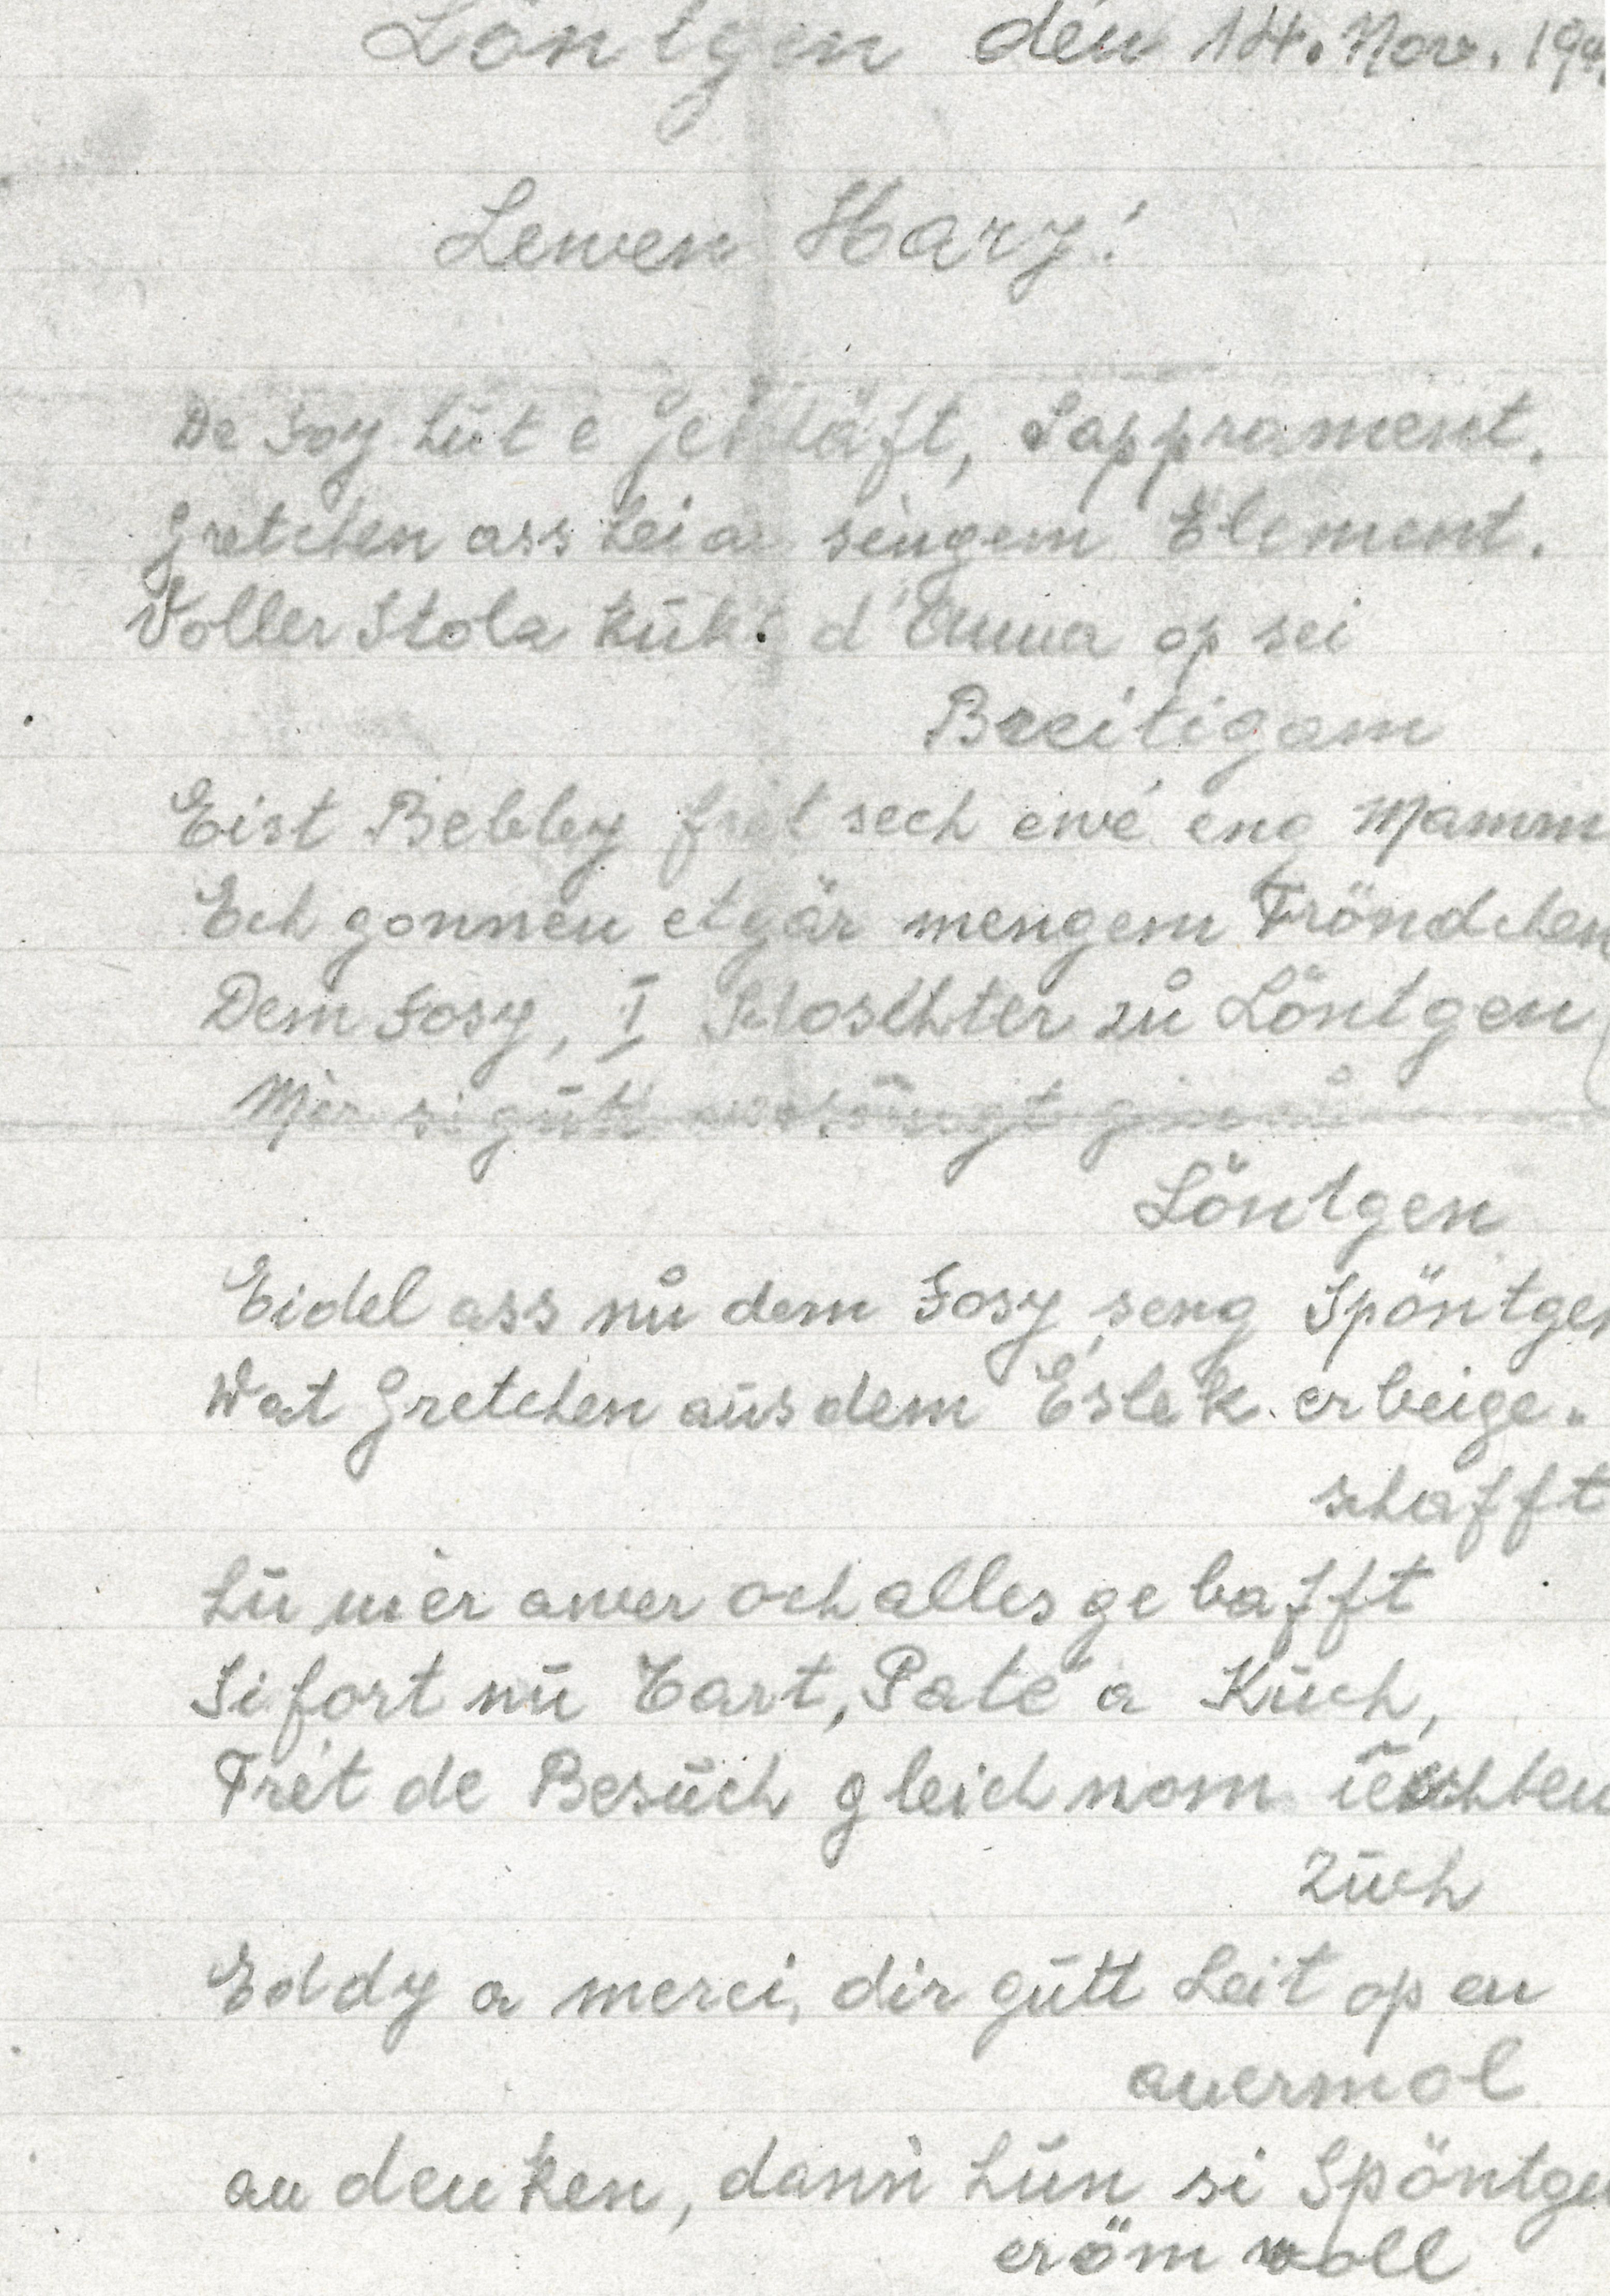 Löntgen den 14. Nov. 19
Lewen Hary!
De Josy hūt e , Sapprament.
Gretchen ass hei a sengem Element.
Voller Stolz kūkt d'Anna op sei
Breitigam
Eist Bebby frét sech ewé eng Mamm
Ech gonnen et gär mengem Fröndchen
Dem Josy, I zů Löntgen
Mir si gūtt
Löntgen
Eidel ass nů dem Josy seng Spöntgen
Wat Gretchen aūs dem Éslek erbeige-
schafft
Hū mèr awer och alles gebafft
Si fort nū Tart, Paté a Kūch,
Frét de Besūch gleich nom ieschten
Zūch
Eddy a merci, dir gūtt Leit op en
anermol
an denken, dann hūn si Spöntgen
eröm voll